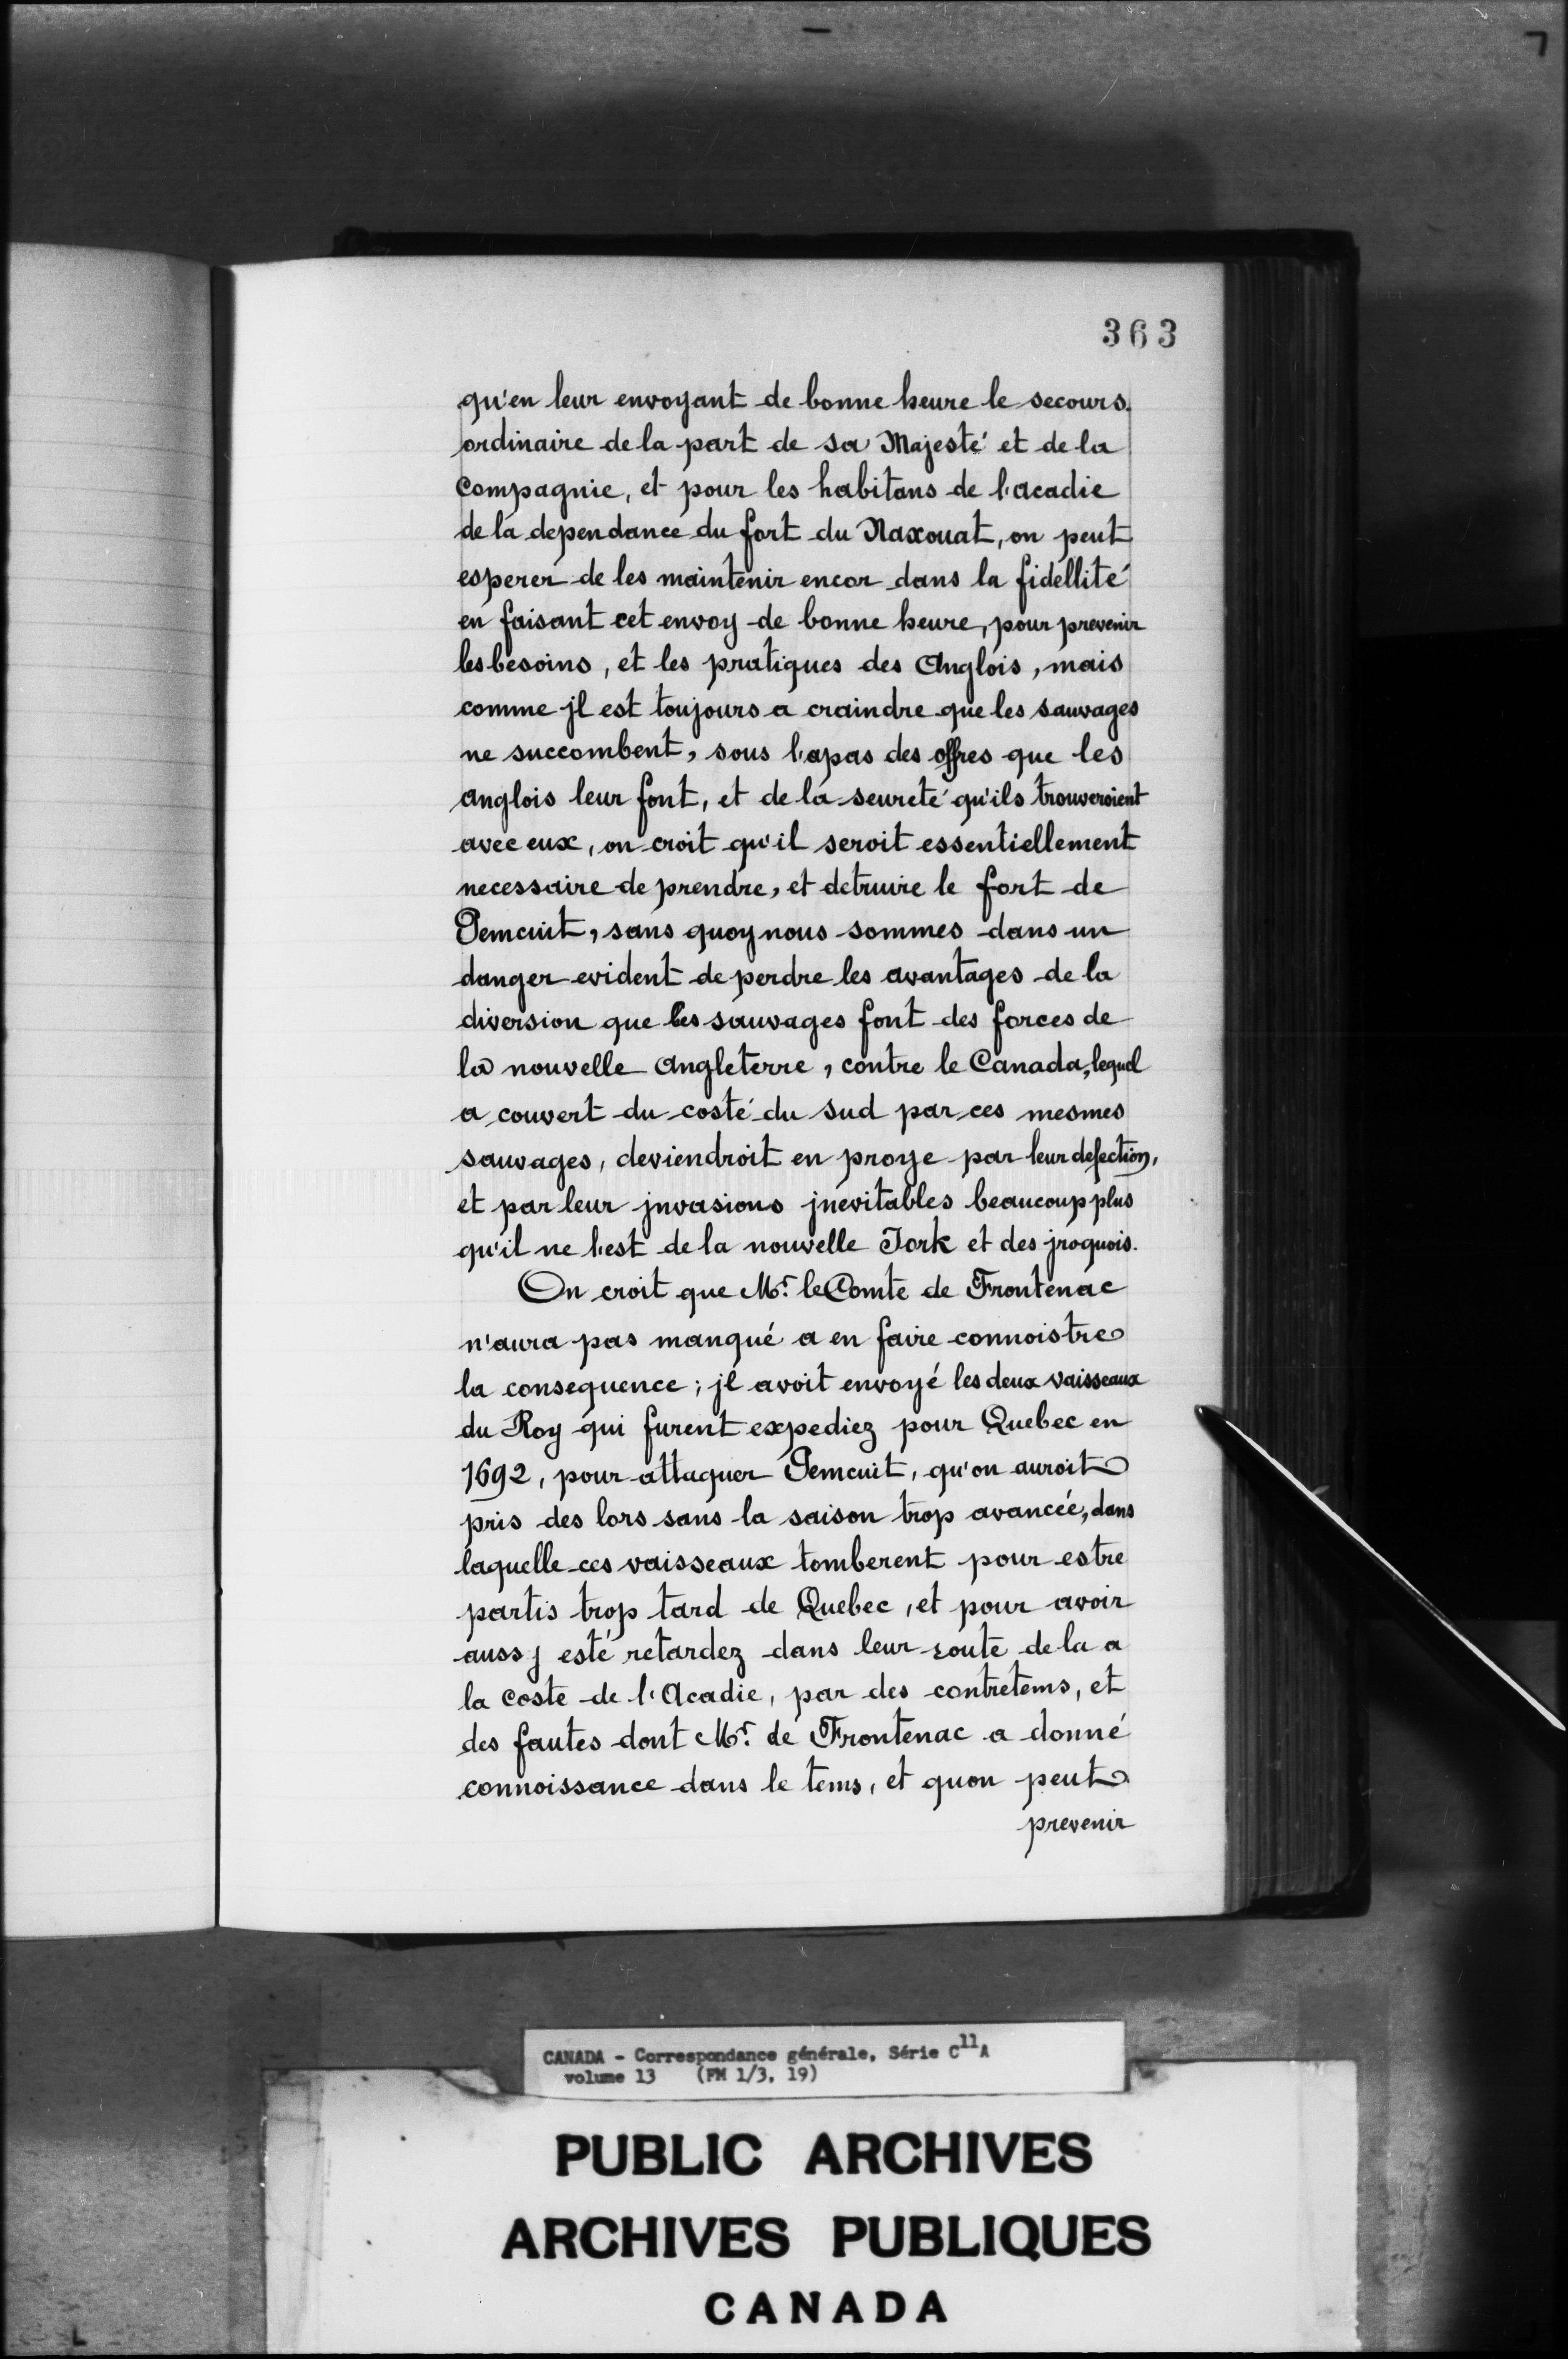 363
qu'en leur envoyant de bonne heure le secours.
ordinaire de la part de sa Majesté et de la
Compagnie, et pour les habitans de l'acadie
de la dependance du fort du Naxouat, on peut
esperer de les maintenir encor dans la fidellité
en faisant cet envoy de bonne heure, pour prevenir
les besoins, et les pratiques des Anglois, mais
comme jl est toujours a craindre que les sauvages
ne succombent, sous l'apas des offres que les
anglois leur font, et de la seureté qu'ils trouveroient
avec eux, on croit qu'il seroit essentiellement
necessaire de prendre, et detruire le fort de
Pemcuit, sans quoy nous sommes dans un
danger evident de perdre les avantages de la
diversion que les sauvages font des forces de
la nouvelle Angleterre, contre le Canada, lequel
a couvert du costé du Sud par ces mesmes
sauvages, deviendroit en proye par leur defection,
et par leur jnvasions jnevitables beaucoup plus
qu'il ne l'est de la nouvelle Iork et des jroquois.
On croit que Mr. le Comte de Frontenac
n'aura pas manqué a en faire connoistre
la consequence; jl avoit envoyé les deux vaisseaux
du Roy qui furent expediez pour Quebec en
1692, pour attaquer Pemcuit, qu'on auroit
pris des lors sans la saison trop avancée, dans
laquelle ces vaisseaux tomberent pour estre
partis trop tard de Quebec, et pour avoir
aussj esté retardez dans leur route de la a
la coste de l'Acadie, par des contretems, et
des fautes dont Mr. de Frontenac a donné
connoissance dans le tems, et quon peut
prevenir
CANADA - Correspondance générale, Série C11A
volume 13 (FM 1/3, 19)
PUBLIC ARCHIVES
ARCHIVES PUBLIQUES
CANADA